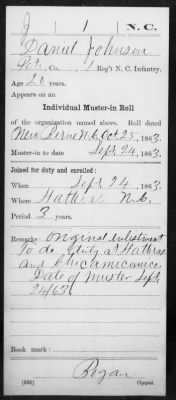 J 1 N.C.
Daniel Johnson
Pvt., Co. , 1 Reg't N. C. Infantry.
Age 20 years.
Appears on an
Individual Muster-in Roll
of the organization named above. Roll dated
New Berne N.C. Oct 25, 1863.
Muster-in to date Sept. 24, 1863.
Joined for duty and enrolled:
When Sept 24, 1863.
Where Hatteras N.C.
Period 3 years.
Remarks: original enlistment
to do duty at Hatteras
and Chicamicomico.
Date of muster Sept
24/63.
Book mark:
Copyist.